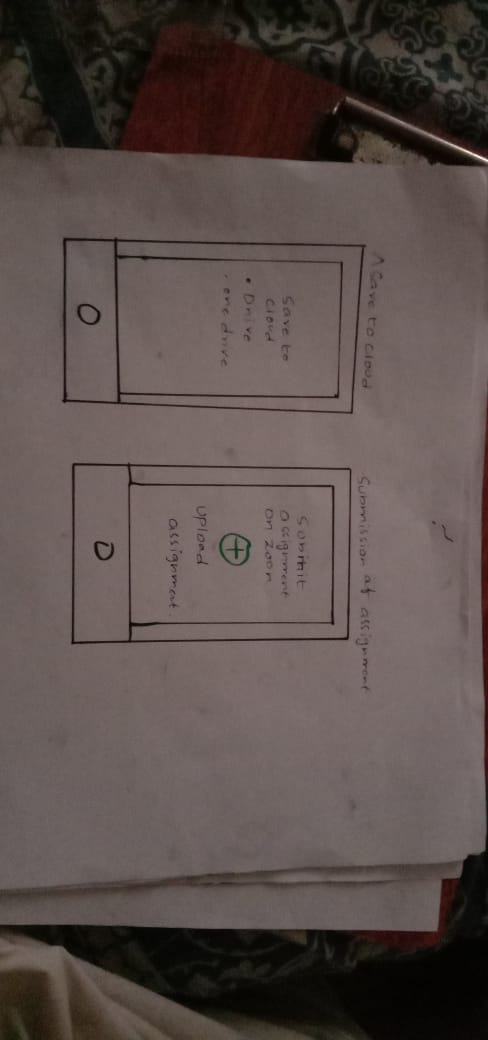 Save to cloud
Save to
cloud
• Drive
• one drive
Submission of assignment
Submit
assignment
on zoom
+
upload
assignment.